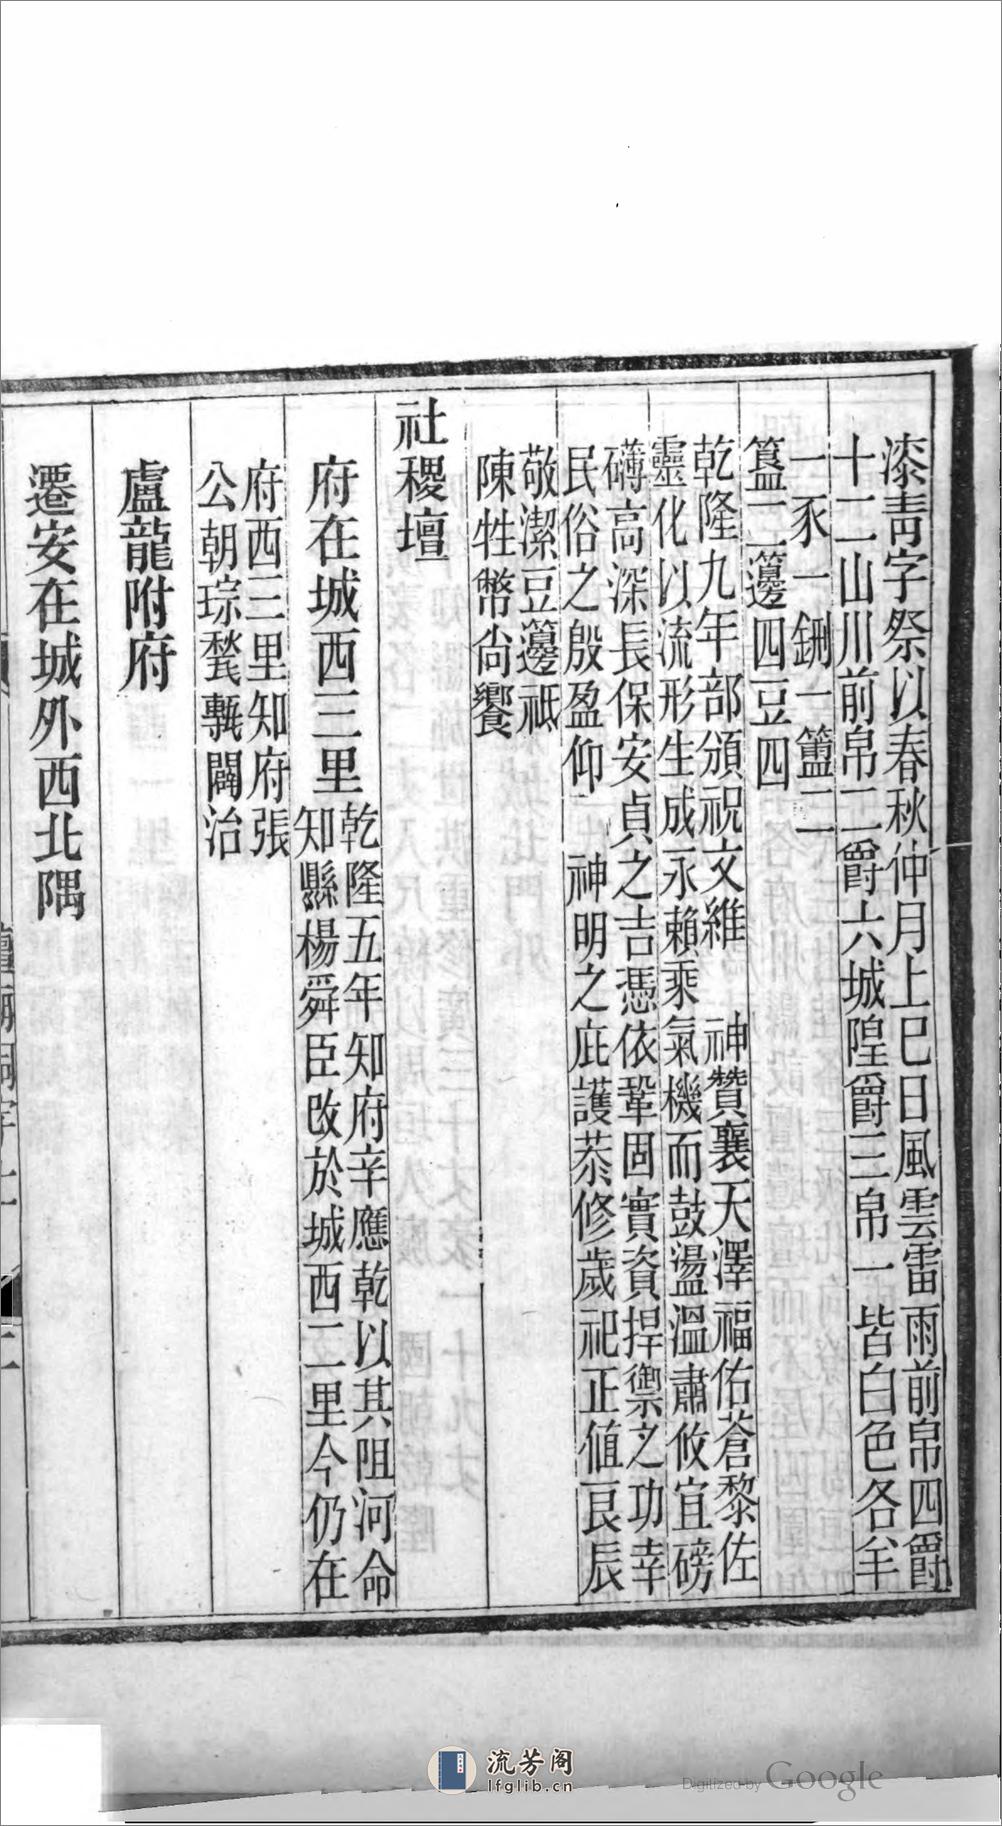 漆青字祭以春秋仲月上巳日風雲雷雨前帛四爵
十二山川前帛二爵六城隍爵三帛一皆白色各羊
一豕一鉶一簠二
簋二籩四豆四
乾隆九年部頒祝文維　神贊襄天澤福佑蒼黎佐
靈化以流形生成永賴乘氣機而鼓盪溫肅攸宜磅
礴高深長保安貞之吉憑依鞏固實資捍禦之功幸
民俗之殷盈仰　神明之庇護恭修歲祀正值良辰
敬潔豆籩祗
陳牲幣尙饗
社稷壇
府在城西三里
乾隆五年知府辛應乾以其阻河命
知縣楊舜臣改於城西二里今仍在
府西三里知府張
公朝琮甃甎闢治
盧龍附府
遷安在城外西北隅
二
流芳阁
lfglib.cn
Digitized by Google